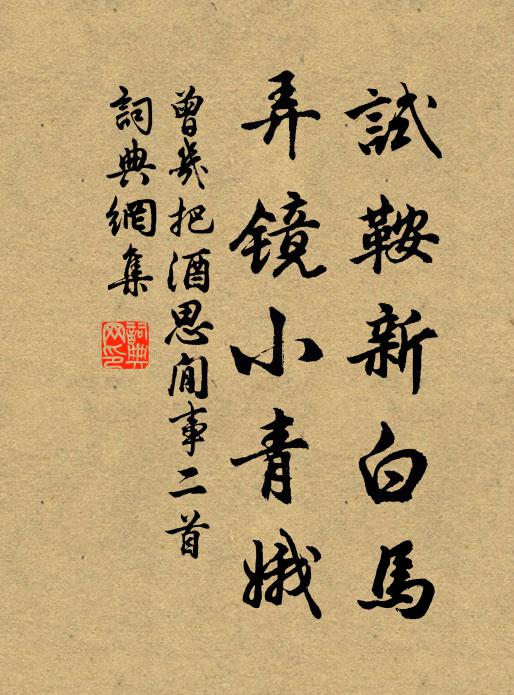 試鞍新白馬
弄鏡小青娥
曾幾把酒思閒事二首
詞典網集
詞典网印